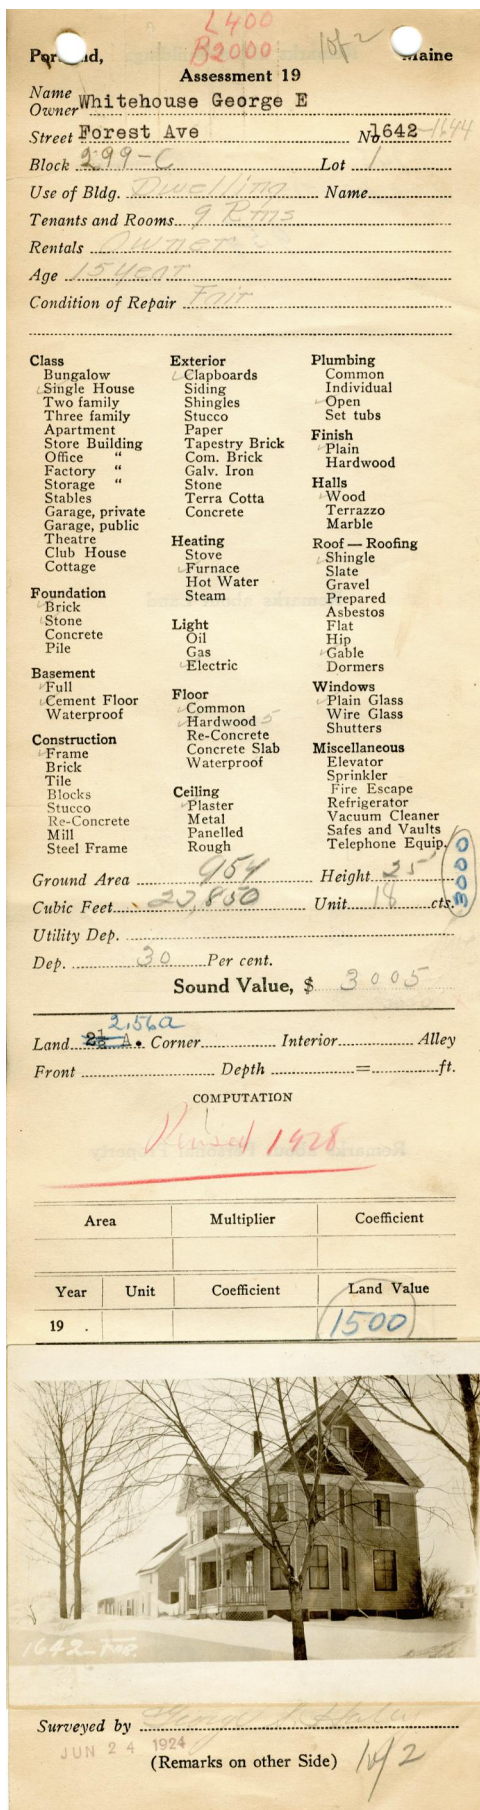 L400
B2000 1 of 2
Portland, Maine
Assessment 19
Name
Owner Whitehouse George E
Street Forest Ave No. 1642-1644
Block 299-C Lot 1
Use of Bldg. Dwelling Name
Tenants and Rooms 9 Rms
Rentals Owner
Age 15 year
Condition of Repair Fair
Class
Bungalow
Single House
Two family
Three family
Apartment
Store Building
Office "
Factory "
Storage "
Stables
Garage, private
Garage, public
Theatre
Club House
Cottage
Foundation
Brick
Stone
Concrete
Pile
Basement
Full
Cement Floor
Waterproof
Construction
Frame
Brick
Tile
Blocks
Stucco
Re-Concrete
Mill
Steel Frame
Exterior
Clapboards
Siding
Shingles
Stucco
Paper
Tapestry Brick
Com. Brick
Galv. Iron
Stone
Terra Cotta
Concrete
Heating
Stove
Furnace
Hot Water
Steam
Light
Oil
Gas
Electric
Floor
Common
Hardwood 5
Re-Concrete
Concrete Slab
Waterproof
Ceiling
Plaster
Metal
Panelled
Rough
Plumbing
Common
Individual
Open
Set tubs
Finish
Plain
Hardwood
Halls
Wood
Terrazzo
Marble
Roof — Roofing
Shingle
Slate
Gravel
Prepared
Asbestos
Flat
Hip
Gable
Dormers
Windows
Plain Glass
Wire Glass
Shutters
Miscellaneous
Elevator
Sprinkler
Fire Escape
Refrigerator
Vacuum Cleaner
Safes and Vaults
Telephone Equip.
3000
Ground Area 954 Height 25'
Cubic Feet 23,850 Unit 18 cts.
Utility Dep.
Dep. 30 Per cent.
Sound Value, $ 3005
2.56a
Land 2½ A. Corner Interior Alley
Front Depth = ft.
COMPUTATION
Revised 1928
Area Multiplier Coefficient
Year Unit Coefficient Land Value
19 . 1500
1642-For.
Surveyed by George
JUN 24 1924
(Remarks on other Side) 1 of 2